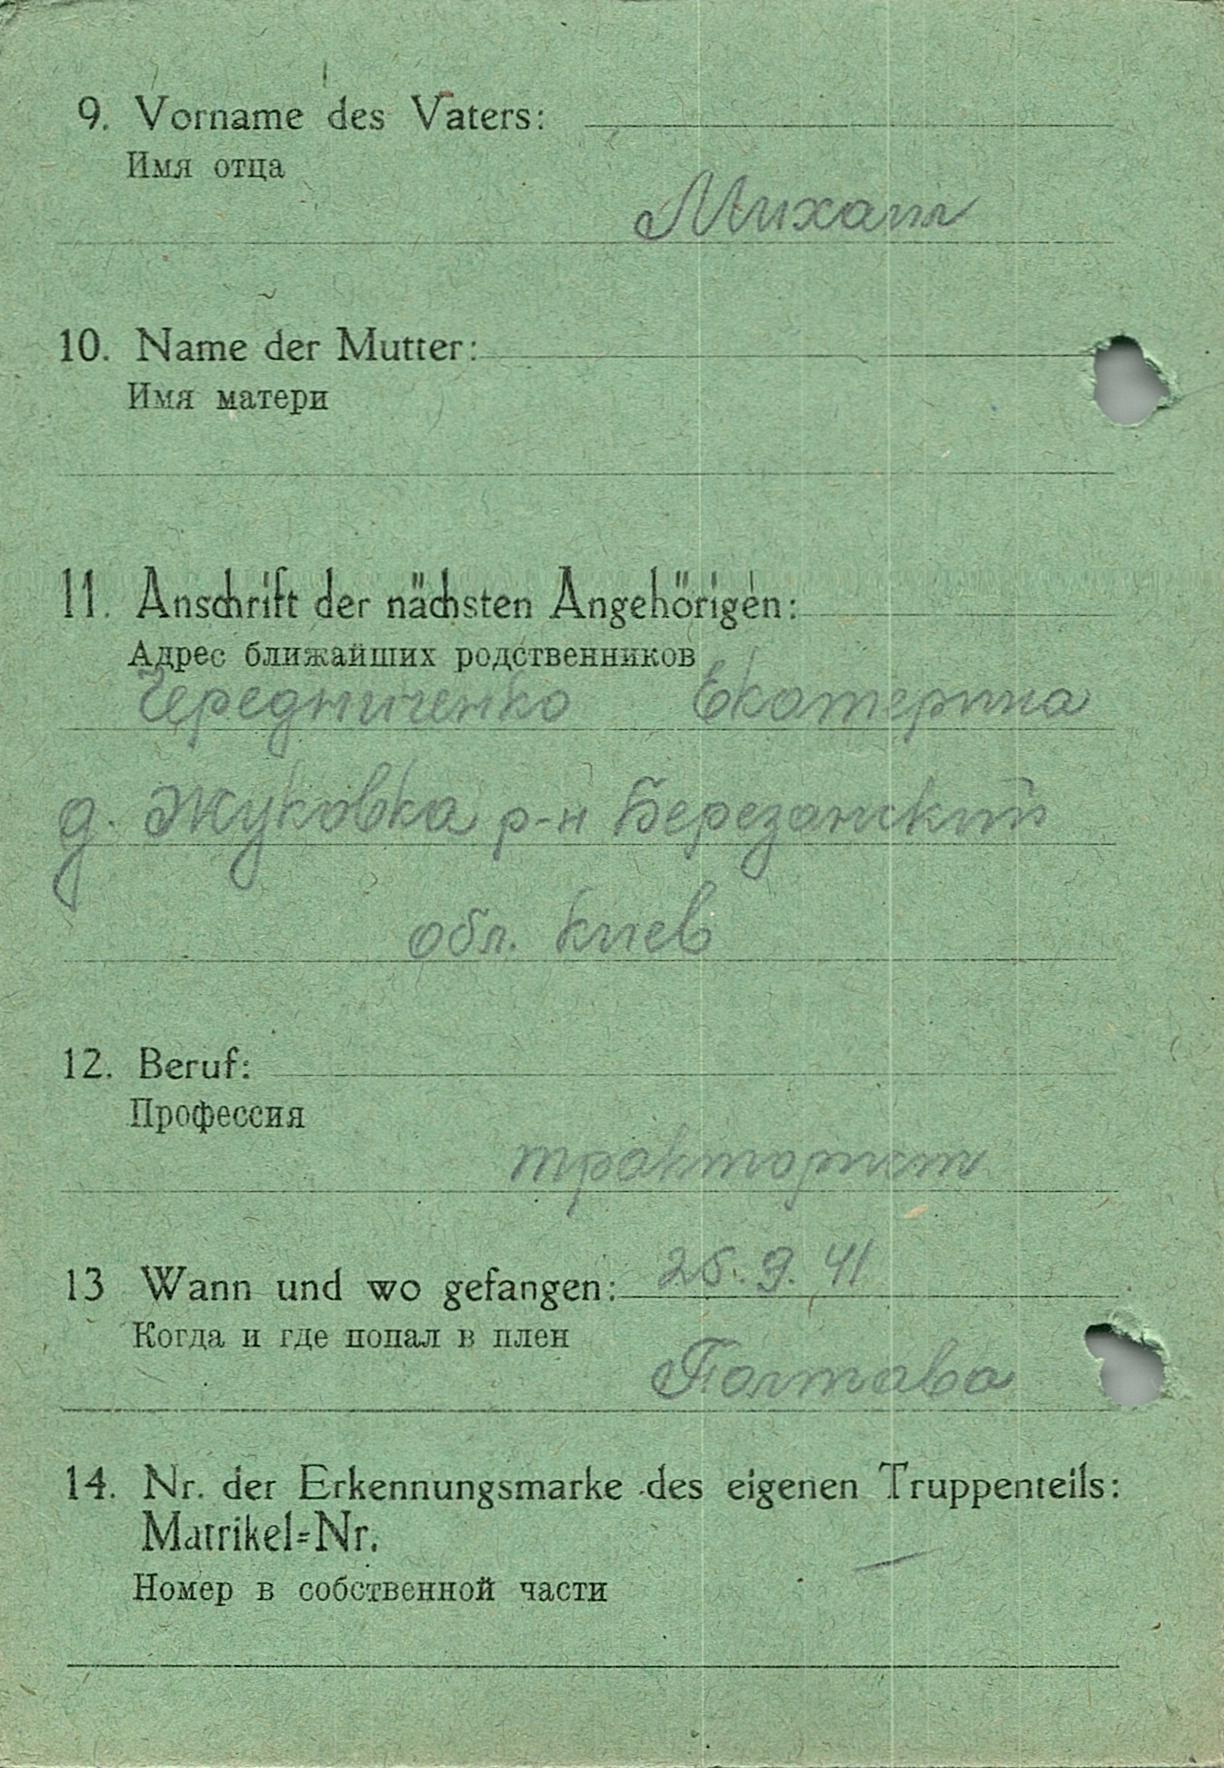 9. Vorname des Vaters:
Имя отца
Михаил
10. Name der Mutter:
Имя матери
11. Anschrift der nächsten Angehörigen:
Адрес ближайших родственников
Чередниченко Екатерина
д. Жуковка р-н Березанский
обл. Киев
12. Beruf:
Профессия
тракторист
13 Wann und wo gefangen: 25.9.41
Когда и где попал в плен
Полтава
14. Nr. der Erkennungsmarke des eigenen Truppenteils:
Matrikel=Nr. —
Номер в собственной части